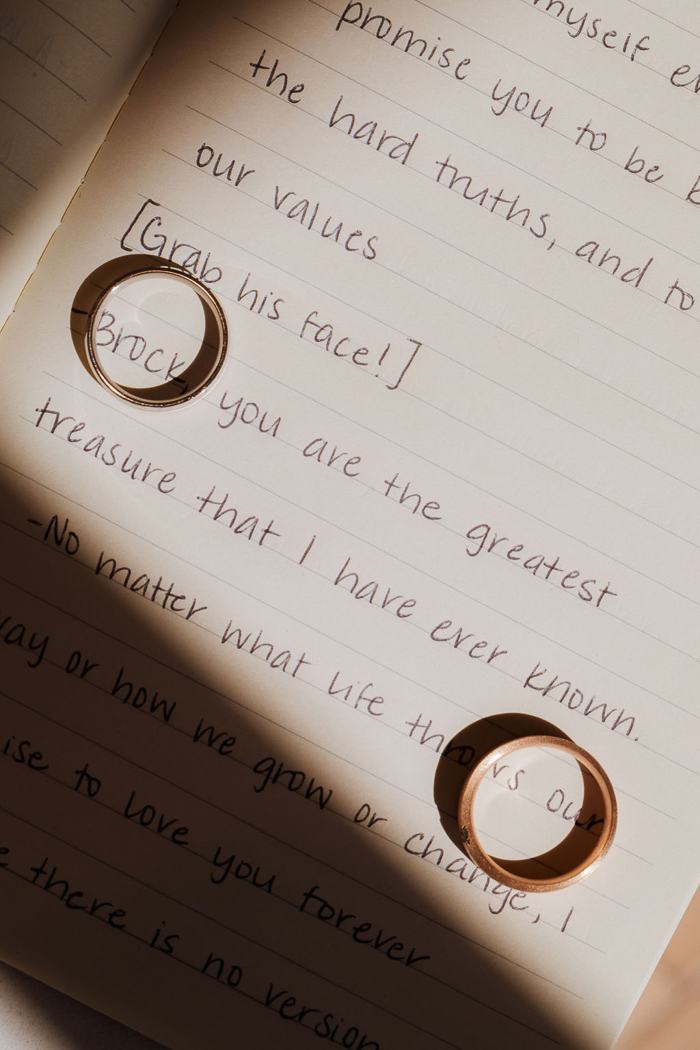 myself
promise you to be
the hard truths, and to
our values
[Grab his face!]
- Brock, you are the greatest
treasure that I have ever known.
-No matter what life throws our
way or how we grow or change, I
ise to love you forever
there is no version